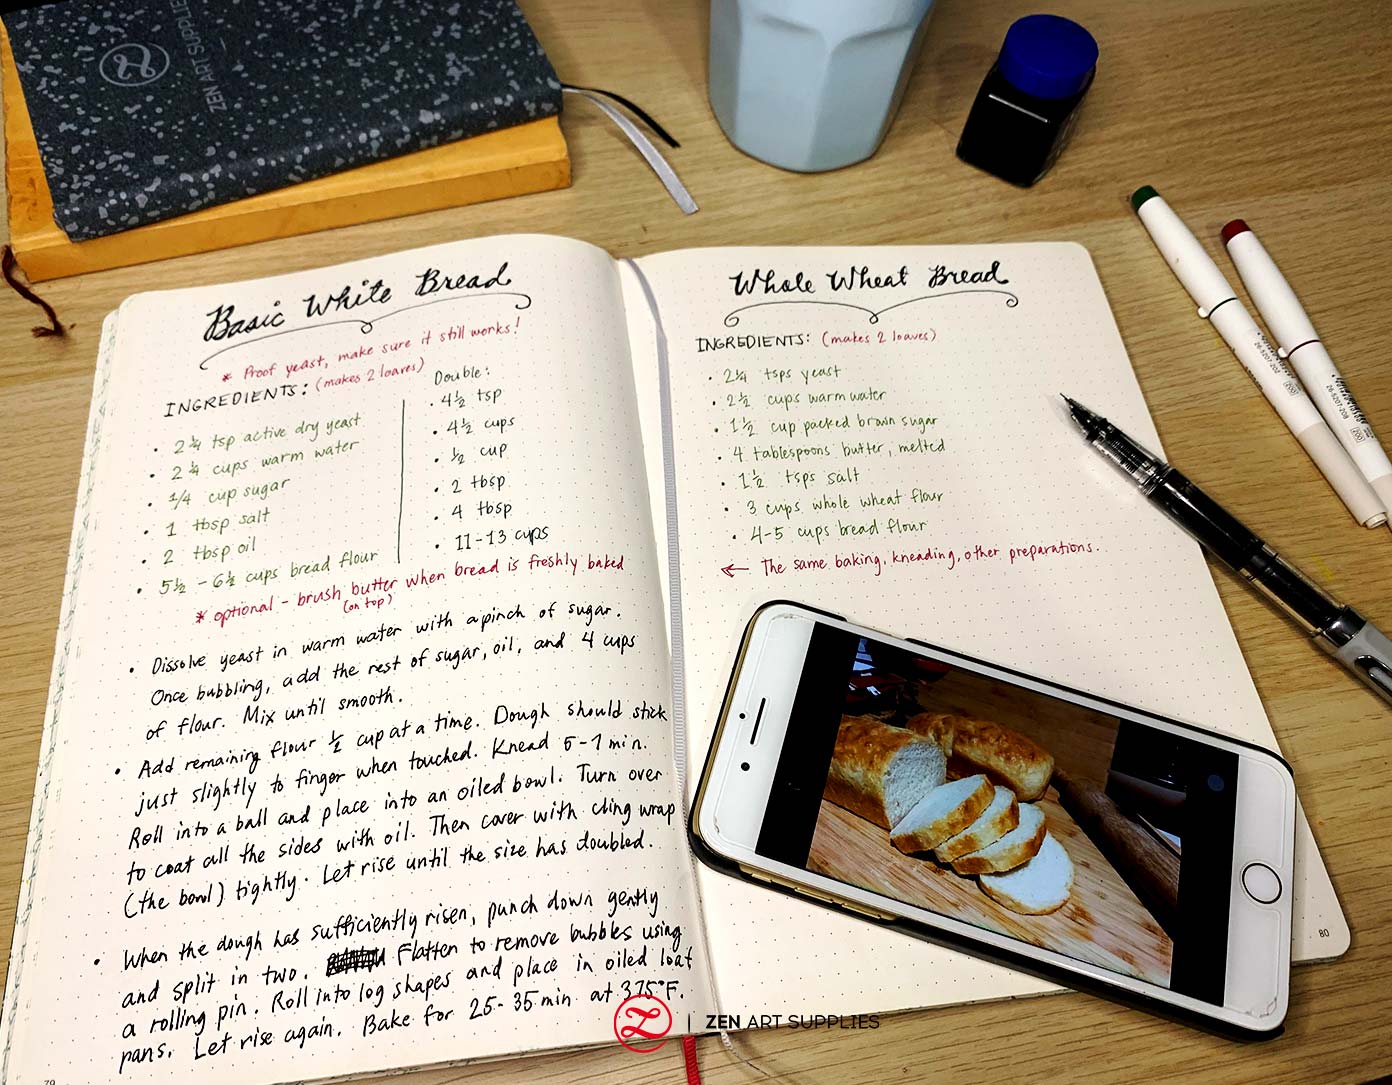 ZEN ART SUPPLIES
Basic White Bread
* Proof yeast, make sure it still works!
INGREDIENTS: (makes 2 loaves)
• 2 1/4 tsp active dry yeast
• 2 1/4 cups warm water
• 1/4 cup sugar
• 1 tbsp salt
• 2 tbsp oil
• 5 1/2 - 6 1/2 cups bread flour
Double:
• 4 1/2 tsp
• 4 1/2 cups
• 1/2 cup
• 2 tbsp
• 4 tbsp
• 11-13 cups
* optional - brush butter when bread is freshly baked
(on top)
• Dissolve yeast in warm water with a pinch of sugar.
Once bubbling, add the rest of sugar, oil, and 4 cups
of flour. Mix until smooth.
• Add remaining flour 1/2 cup at a time. Dough should stick
just slightly to finger when touched. Knead 5-7 min.
Roll into a ball and place into an oiled bowl. Turn over
to coat all the sides with oil. Then cover with cling wrap
(the bowl) tightly. Let rise until the size has doubled.
• When the dough has sufficiently risen, punch down gently
and split in two. Flatten to remove bubbles using
a rolling pin. Roll into log shapes and place in oiled loaf
pans. Let rise again. Bake for 25-35 min at 375°F.
79
Whole Wheat Bread
INGREDIENTS: (makes 2 loaves)
• 2 1/4 tsps yeast
• 2 1/2 cups warm water
• 1 1/2 cup packed brown sugar
• 4 tablespoons butter, melted
• 1 1/2 tsps salt
• 3 cups whole wheat flour
• 4-5 cups bread flour
← The same baking, kneading, other preparations.
80
ZEN ART SUPPLIES